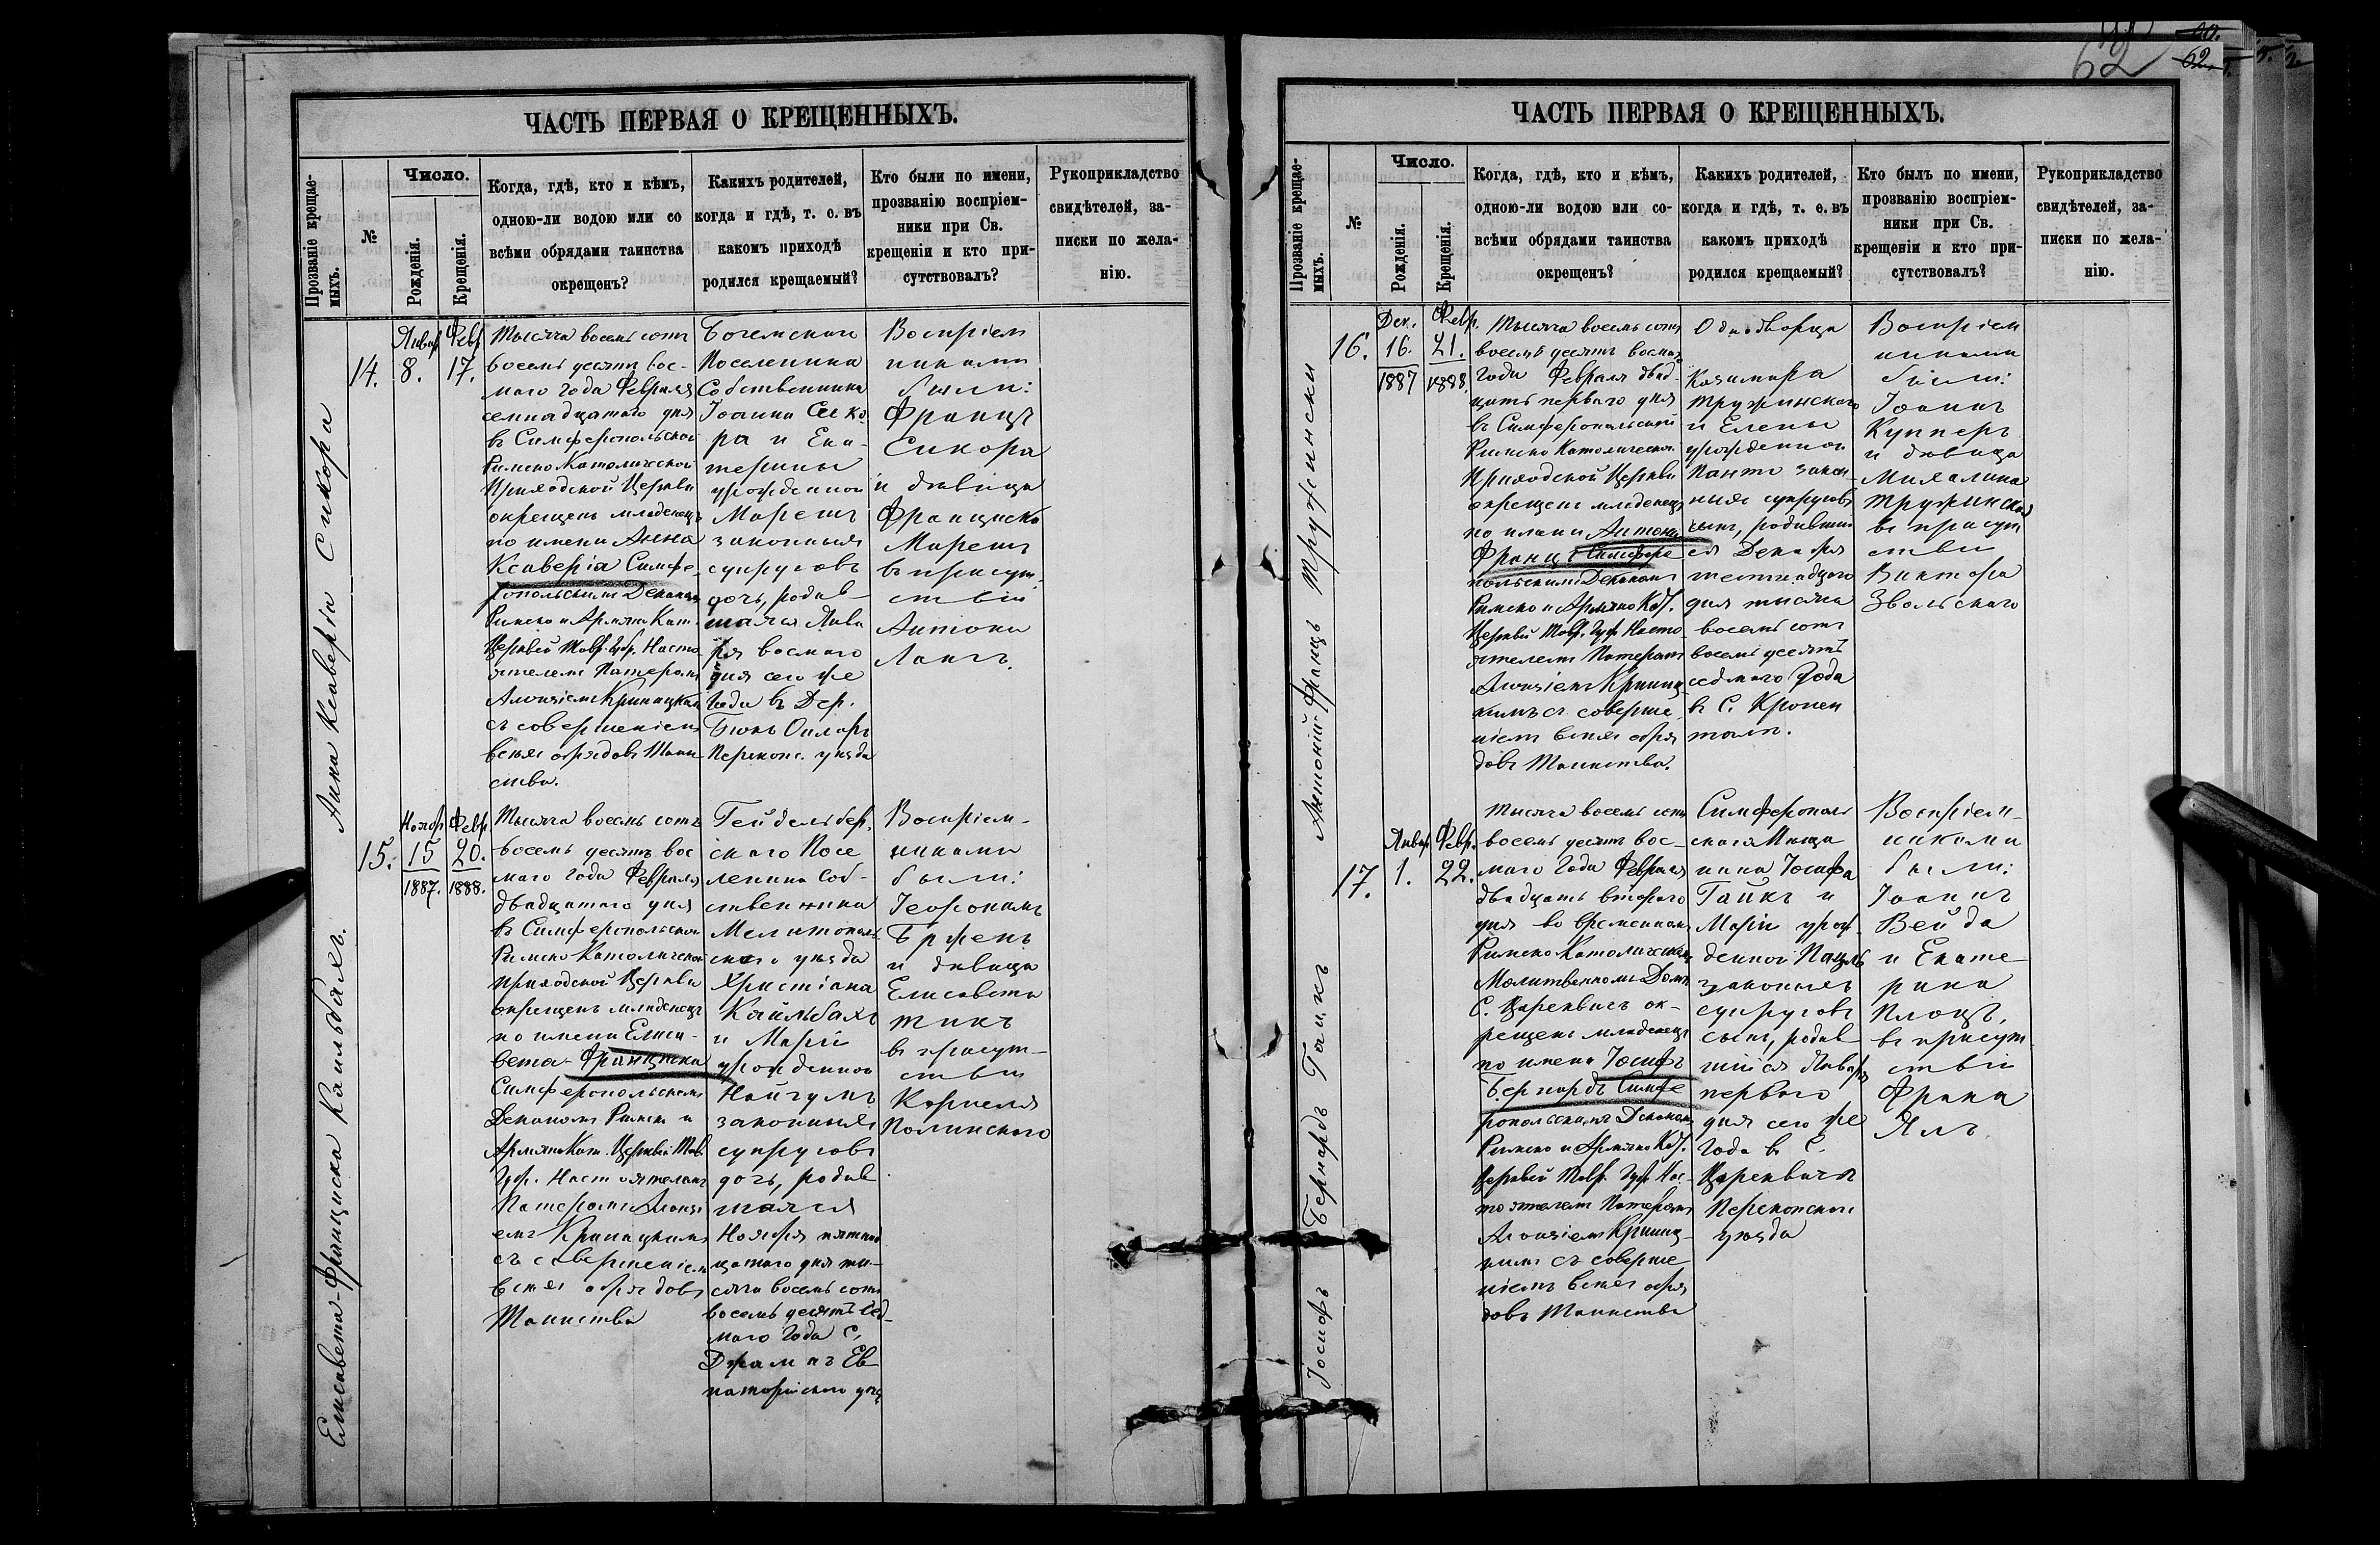 62
62
ЧАСТЬ ПЕРВАЯ О КРЕЩЕННЫХЪ.
Прозваніе крещае-
мыхъ.
№
Число.
Рожденія.
Крещенія.
Когда, гдѣ, кто и кѣмъ,
одною-ли водою или со
всѣми обрядами таинства
окрещенъ?
Какихъ родителей,
когда и гдѣ, т. е. въ
какомъ приходѣ
родился крещаемый?
Кто были по имени,
прозванію воспріем-
ники при Св.
крещеніи и кто при-
сутствовалъ?
Рукоприкладство
свидѣтелей, за-
писки по жела-
нію.
Анна Ксаверія Сикора
14.
Январ
8.
Февр
17.
Тысяча восемь сотъ
восемь десятъ вос-
маго года Февраля
семнадцатаго дня
въ Симферопольской
Римско Католической
Приходской Церкви
окрещенъ младенецъ
по имени Анна
Ксаверія Симфе-
ропольскимъ Деканомъ
Римско и Армяно Кат.
Церквей Тавр. Губ. Насто-
ятелемъ Патеромъ
Алоизіемъ Криницкимъ
съ совершеніемъ
всѣхъ обрядовъ Таин
ства.
Богемскаго
Поселенина
Собственника
Іоанна Сико-
ра и Ека-
терины
урожденной
Марешъ
законныхъ
супруговъ
дочь, родив-
шаяся Янва
ря восмаго
дня сего же
Года въ Дер.
Перекопс. уѣзда
Воспріем
никами
были:
Францъ
Сикора
и дѣвица
Франциска
Марешъ
въ присут-
ствіи
Антона
Лангъ.
Елисавета-Франциска Кайльбахъ.
15.
Нояб
15
1887.
Февр
20.
1888.
Тысяча восемь сотъ
восемь десятъ вос
маго года Февраля
двадцатаго дня
въ Симферопольской
Римско-Католической
Приходской Церкви
окрещенъ младенецъ
по имени Елиса-
вета-Франциска
Симферопольскимъ
Деканомъ Римско и
Армяно Кат. Церквей Тав
Губ. Настоятелемъ
Патеромъ Алоизі
емъ Криницкимъ
съ совершеніемъ
всѣхъ обрядовъ
Таинства
Гейдельбер.
скаго Посе
ленина Соб-
ственника
Мелитополь-
скаго уѣзда
Христіана
Кайльбахъ
и Маріи
урожденной
законныхъ
супруговъ
дочь, родив
шаяся
Ноября пятнад
цатаго дня ты-
сяча восемь сотъ
восемь десятъ сед-
маго Года С.
Ев
паторійскаго уѣзд
Воспріем-
никами
были:
и дѣвица
Елисавета
въ присут-
ствіи
Корнелія
Полинскаго
ЧАСТЬ ПЕРВАЯ О КРЕЩЕННЫХЪ.
Прозваніе крещае-
мыхъ.
№
Число.
Рожденія.
Крещенія.
Когда, гдѣ, кто и кѣмъ,
одною-ли водою или со-
всѣми обрядами таинства
окрещенъ?
Какихъ родителей,
когда и гдѣ, т. е. въ
какомъ приходѣ
родился крещаемый?
Кто былъ по имени,
прозванію воспріем-
ники при Св.
крещеніи и кто при-
сутствовалъ?
Рукоприкладство
свидѣтелей, за-
писки по жела-
нію.
Антоній-Францъ Тружински
16.
Дек.
16.
1887
Февр.
21.
1888.
Тысяча восемь сотъ
восемь десятъ восмаго
Года Февраля двад-
цать перваго дня
въ Симферопольской
Римско Католической
Приходской Церкви
окрещенъ младенецъ
по имени Антоній
Францъ Симферо
польскимъ Деканомъ
Римско и Армяно Кат.
Церквей Тавр. Губ. Насто
ятелемъ Патеромъ
Алоизіемъ Криниц-
кимъ съ соверше-
ніемъ всѣхъ обря
довъ Таинства.
Однодворца
Казимира
Тружинскаго
и Елены
урожденной
закон-
ныхъ супруговъ
сынъ, родившій
ся Декабря
шестнадцаго
дня тысяча
восемь сотъ
восемь десятъ
седмаго Года
въ С. Кронен
талѣ.
Воспріем
никами
были:
Іоаннъ
Купперъ
и дѣвица
Михалина
Тружинская
въ присут
ствіи
Виктора
Звольскаго
Іосифъ Бернардъ Гаикъ
17.
Январ
1.
Февр.
22.
Тысяча восемь сотъ
восемь десятъ вос-
маго Года Февраля
двадцать втораго
дня во временномъ
Римско Католическомъ
Молитвенномъ Домѣ
С. Цареквичъ ок-
рещенъ младенецъ
по имени Іосифъ
Бернардъ Симфе
ропольскимъ Деканомъ
Римско и Армяно Кат.
Церквей Тавр. Губ. Нас-
тоятелемъ Патеромъ
Алоизіемъ Криниц-
кимъ съ соверше
ніемъ всѣхъ обря
довъ Таинства
Симферополь
скаго Мѣща
нина Іосифа
Гаикъ и
Маріи урож-
денной
законныхъ
супруговъ
сынъ, родив
шійся Января
перваго
дня сего же
Года въ С.
Цареквичъ
Перекопскаго
уѣзда
Воспріем-
никами
были:
Іоаннъ
Вейда
и Екате-
рина
Плоцъ,
въ присут
ствіи